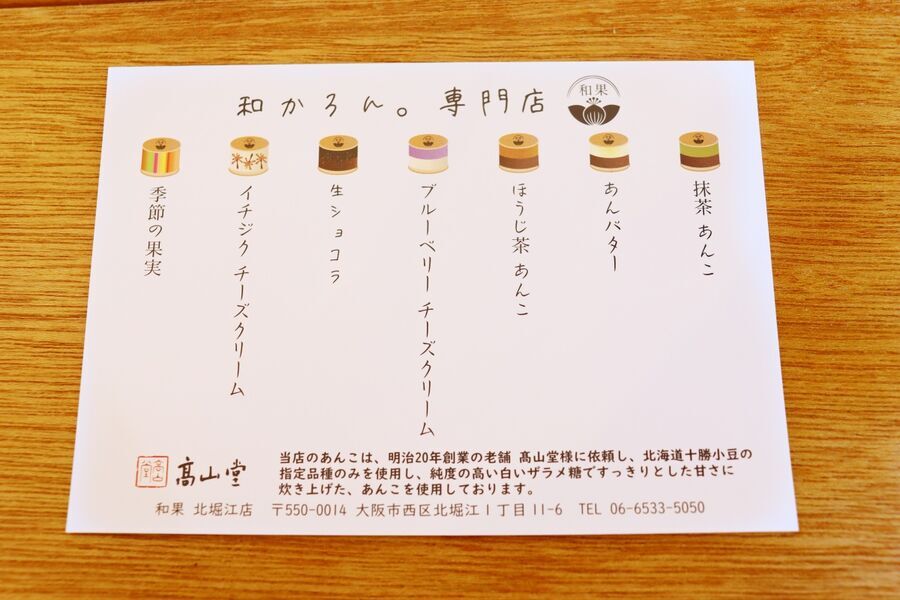 和かろん。専門店
和果
抹茶 あんこ
あんバター
ほうじ茶 あんこ
ブルーベリー チーズクリーム
生ショコラ
イチジク チーズクリーム
季節の果実
髙山堂
当店のあんこは、明治20年創業の老舗 髙山堂様に依頼し、北海道十勝小豆の
指定品種のみを使用し、純度の高い白いザラメ糖ですっきりとした甘さに
炊き上げた、あんこを使用しております。
和果 北堀江店 〒550-0014 大阪市西区北堀江1丁目11-6 TEL 06-6533-5050